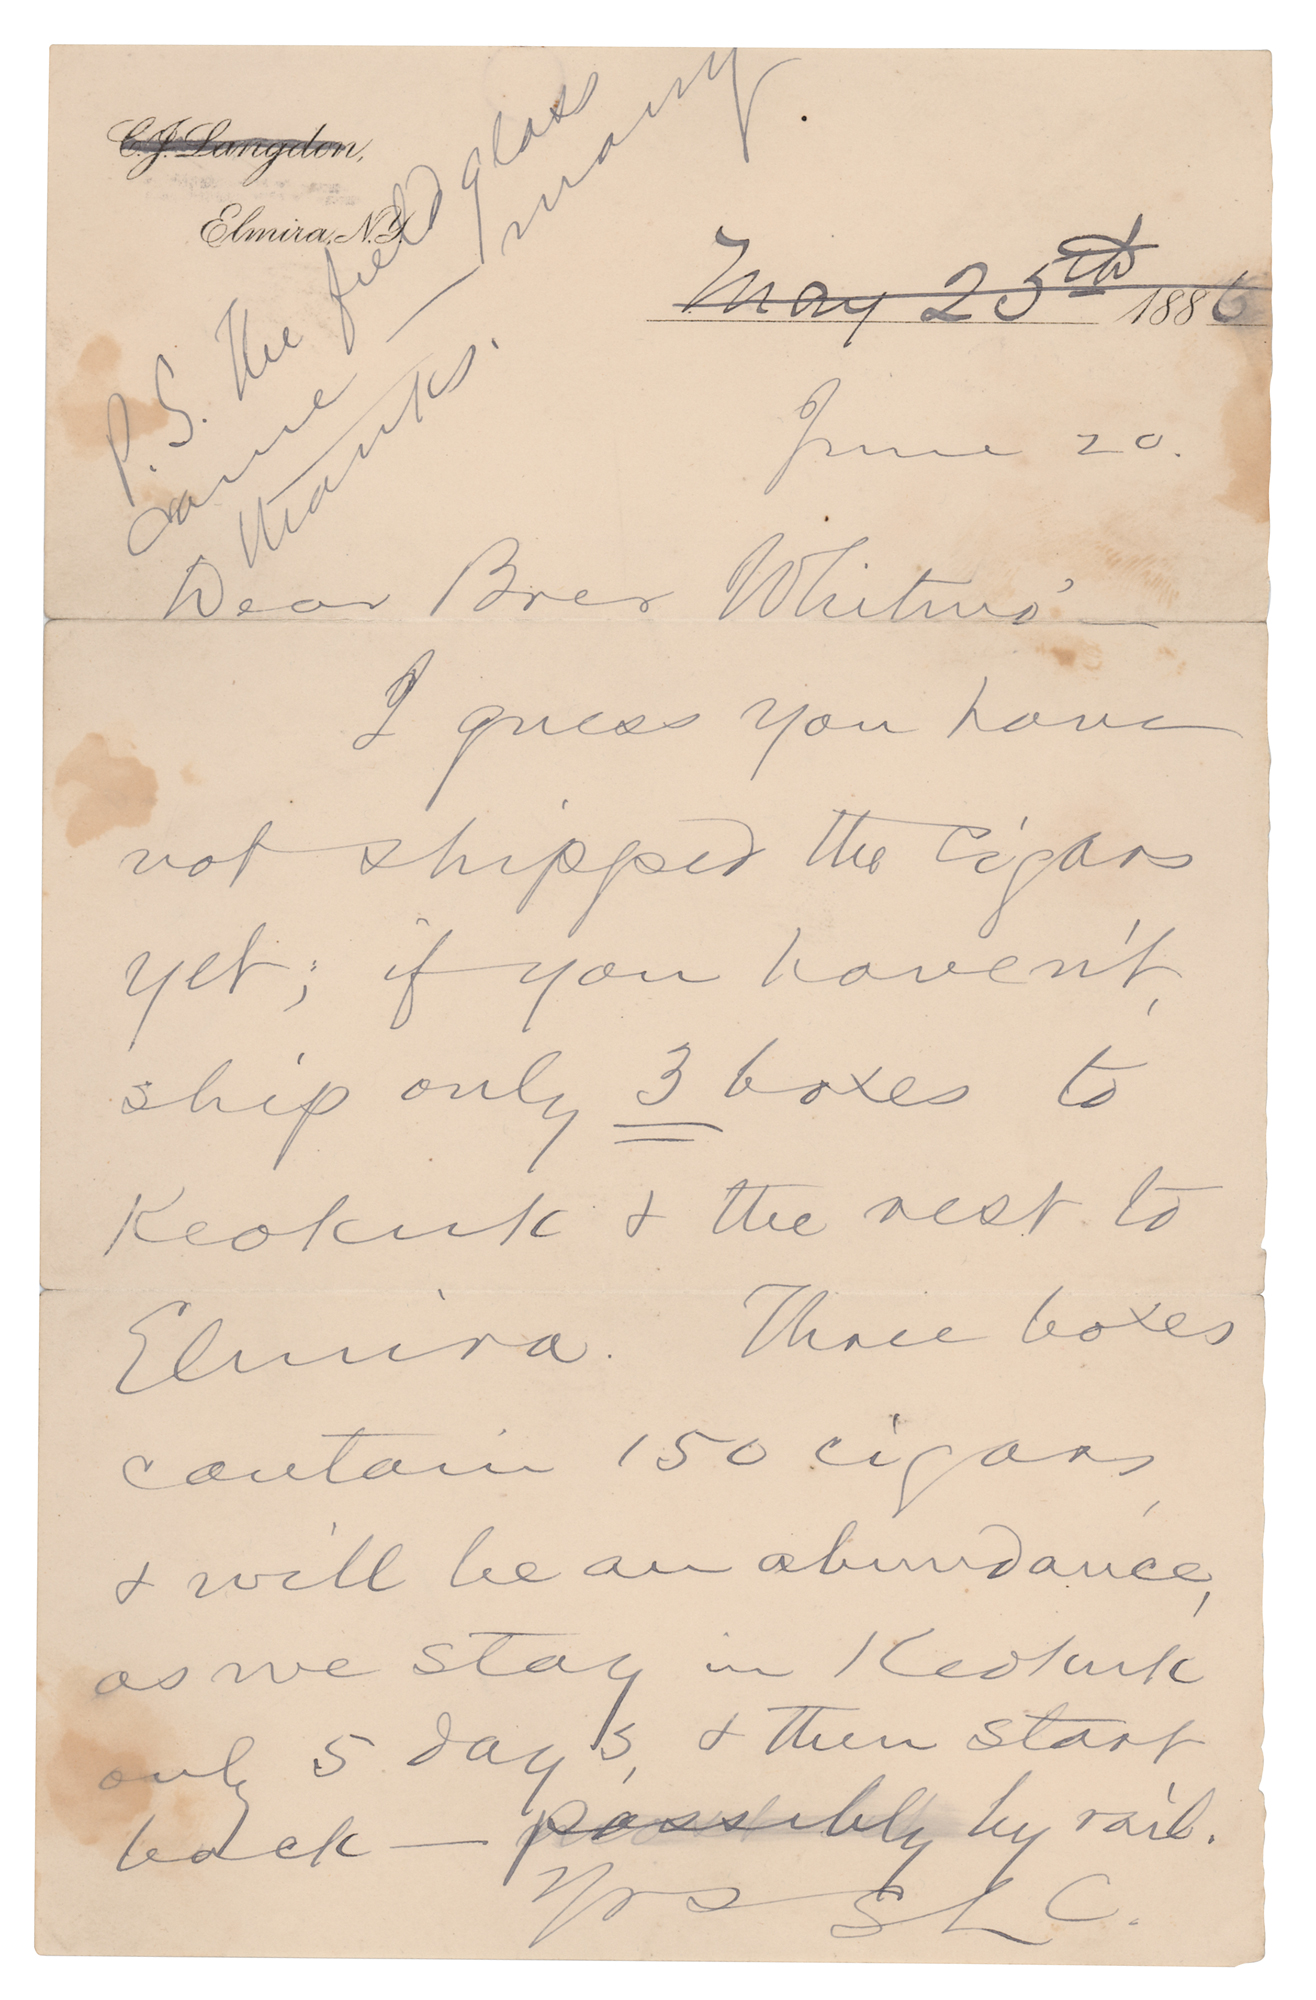 C.J. Langdon,
Elmira, N.Y.
May 25th 1886
June 20.
P.S. The field glass
came — many
thanks.
Dear Brer Whitmo' —
I guess you have
not shipped the cigars
yet; if you haven't,
ship only 3 boxes to
Keokuk & the rest to
Elmira. Three boxes
contain 150 cigars,
& will be an abundance,
as we stay in Keokuk
only 5 days, & then start
back — possibly by rail.
Yrs SLC.